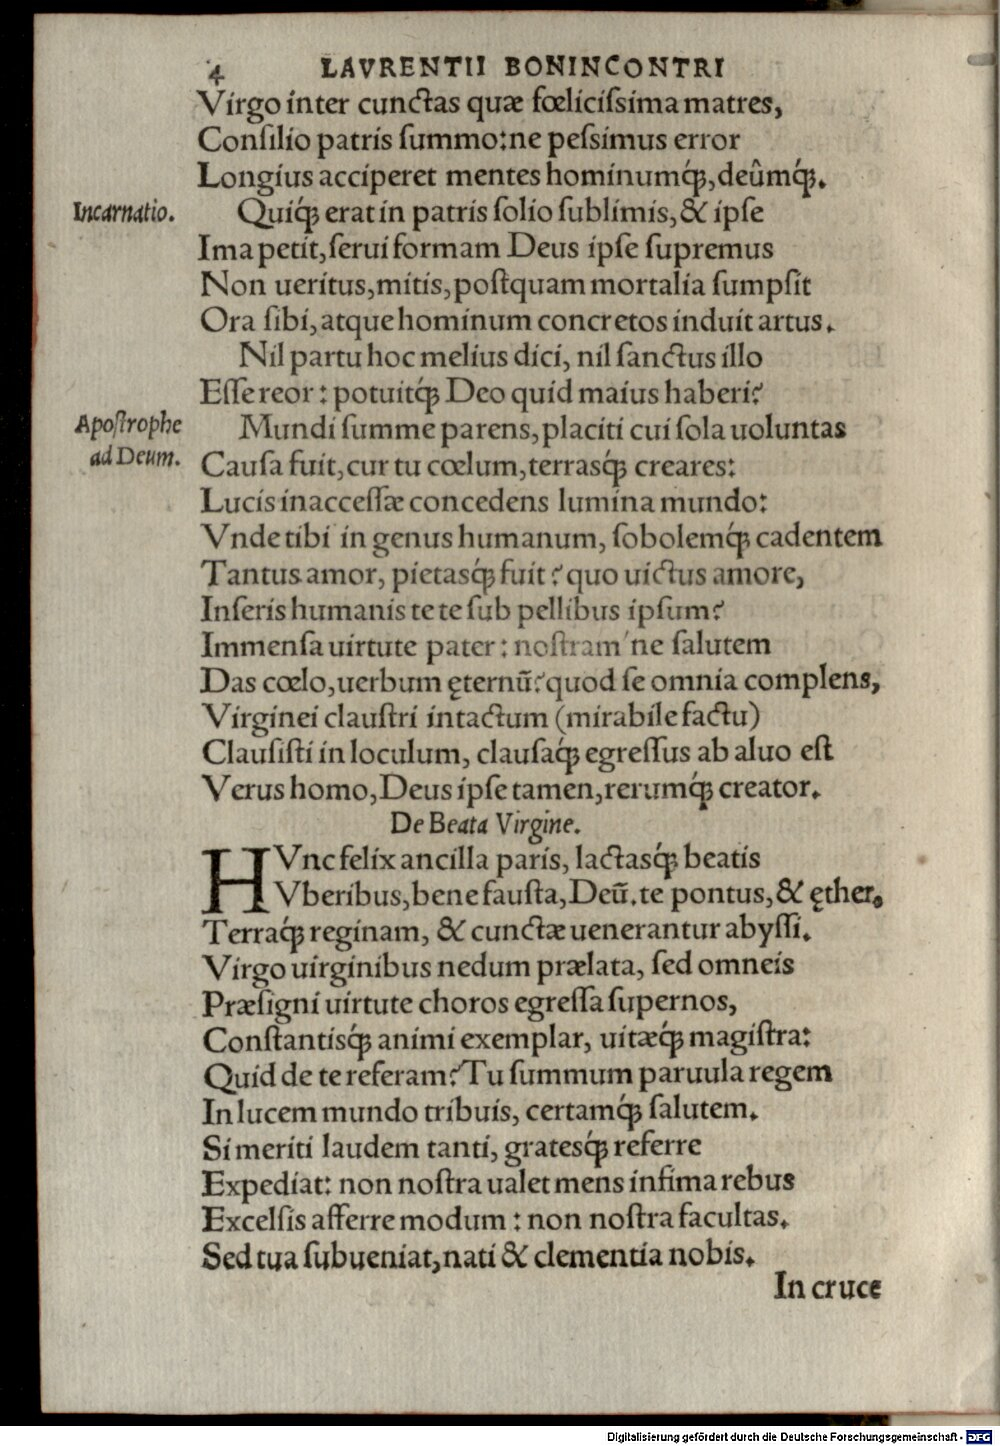 4 LAVRENTII BONINCONTRI
Virgo inter cunctas quæ fœliciſsima matres,
Conſilio patris ſummo:ne peſsimus error
Longius acciperet mentes hominumq́ꝫ, deûmq́ꝫ.
Incarnatio.
Quiq́ꝫ erat in patris ſolio ſublimis, & ipſe
Ima petit, ſerui formam Deus ipſe ſupremus
Non ueritus, mitis, poſtquam mortalia ſumpſit
Ora ſibi, atque hominum concretos induit artus.
Nil partu hoc melius dici, nil ſanctus illo
Eſſe reor: potuitq́ꝫ Deo quid maius haberi?
Apoſtrophe
ad Deum.
Mundi ſumme parens, placiti cui ſola uoluntas
Cauſa fuit, cur tu cœlum, terrasq́ꝫ creares:
Lucis inacceſſæ concedens lumina mundo:
Vnde tibi in genus humanum, ſobolemq́ꝫ cadentem
Tantus amor, pietasq́ꝫ fuit? quo uictus amore,
Inſeris humanis te te ſub pellibus ipſum?
Immenſa uirtute pater: noſtram'ne ſalutem
Das cœlo, uerbum ęternū? quod ſe omnia complens,
Virginei clauſtri intactum (mirabile factu)
Clauſiſti in loculum, clauſaq́ꝫ egreſſus ab aluo eſt
Verus homo, Deus ipſe tamen, rerumq́ꝫ creator.
De Beata Virgine.
HVnc felix ancilla paris, lactasq́ꝫ beatis
Vberibus, bene fauſta, Deū. te pontus, & ęther,
Terraq́ꝫ reginam, & cunctæ uenerantur abyſſi.
Virgo uirginibus nedum prælata, ſed omneis
Præſigni uirtute choros egreſſa ſupernos,
Conſtantisq́ꝫ animi exemplar, uitæq́ꝫ magiſtra:
Quid de te referam? Tu ſummum paruula regem
In lucem mundo tribuis, certamq́ꝫ ſalutem.
Si meriti laudem tanti, gratesq́ꝫ referre
Expediat: non noſtra ualet mens infima rebus
Excelſis afferre modum: non noſtra facultas.
Sed tua ſubueniat, nati & clementia nobis.
In cruce
Digitalisierung gefördert durch die Deutsche Forschungsgemeinschaft - DFG